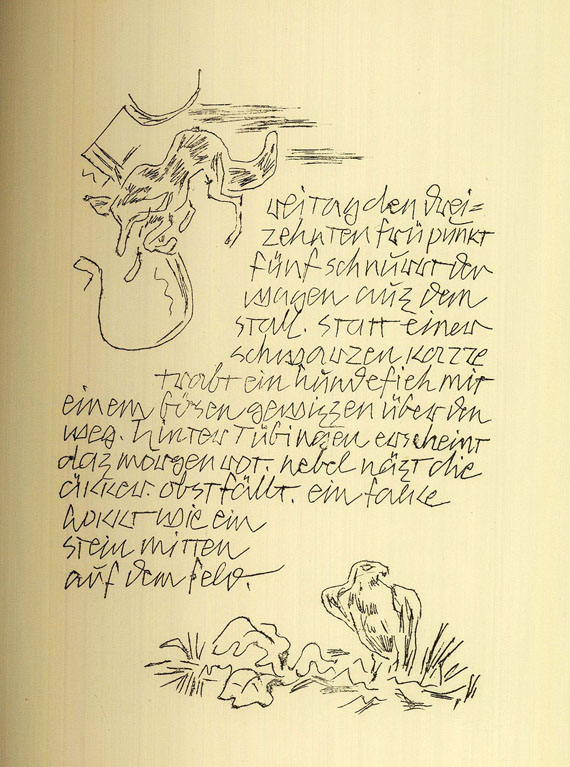 freitag den drei=
zehnten frü punkt
fünf schnurrt der
wagen auz dem
stall. statt einer
schwarzen kazze
trabt ein hundefieh mit
einem bösen gewizzen über den
weg. hinter Tübingen erscheint
daz morgenrot. nebel näzt die
äkker. obst fällt. ein falke
hokkt wie ein
stein mitten
auf dem feld.